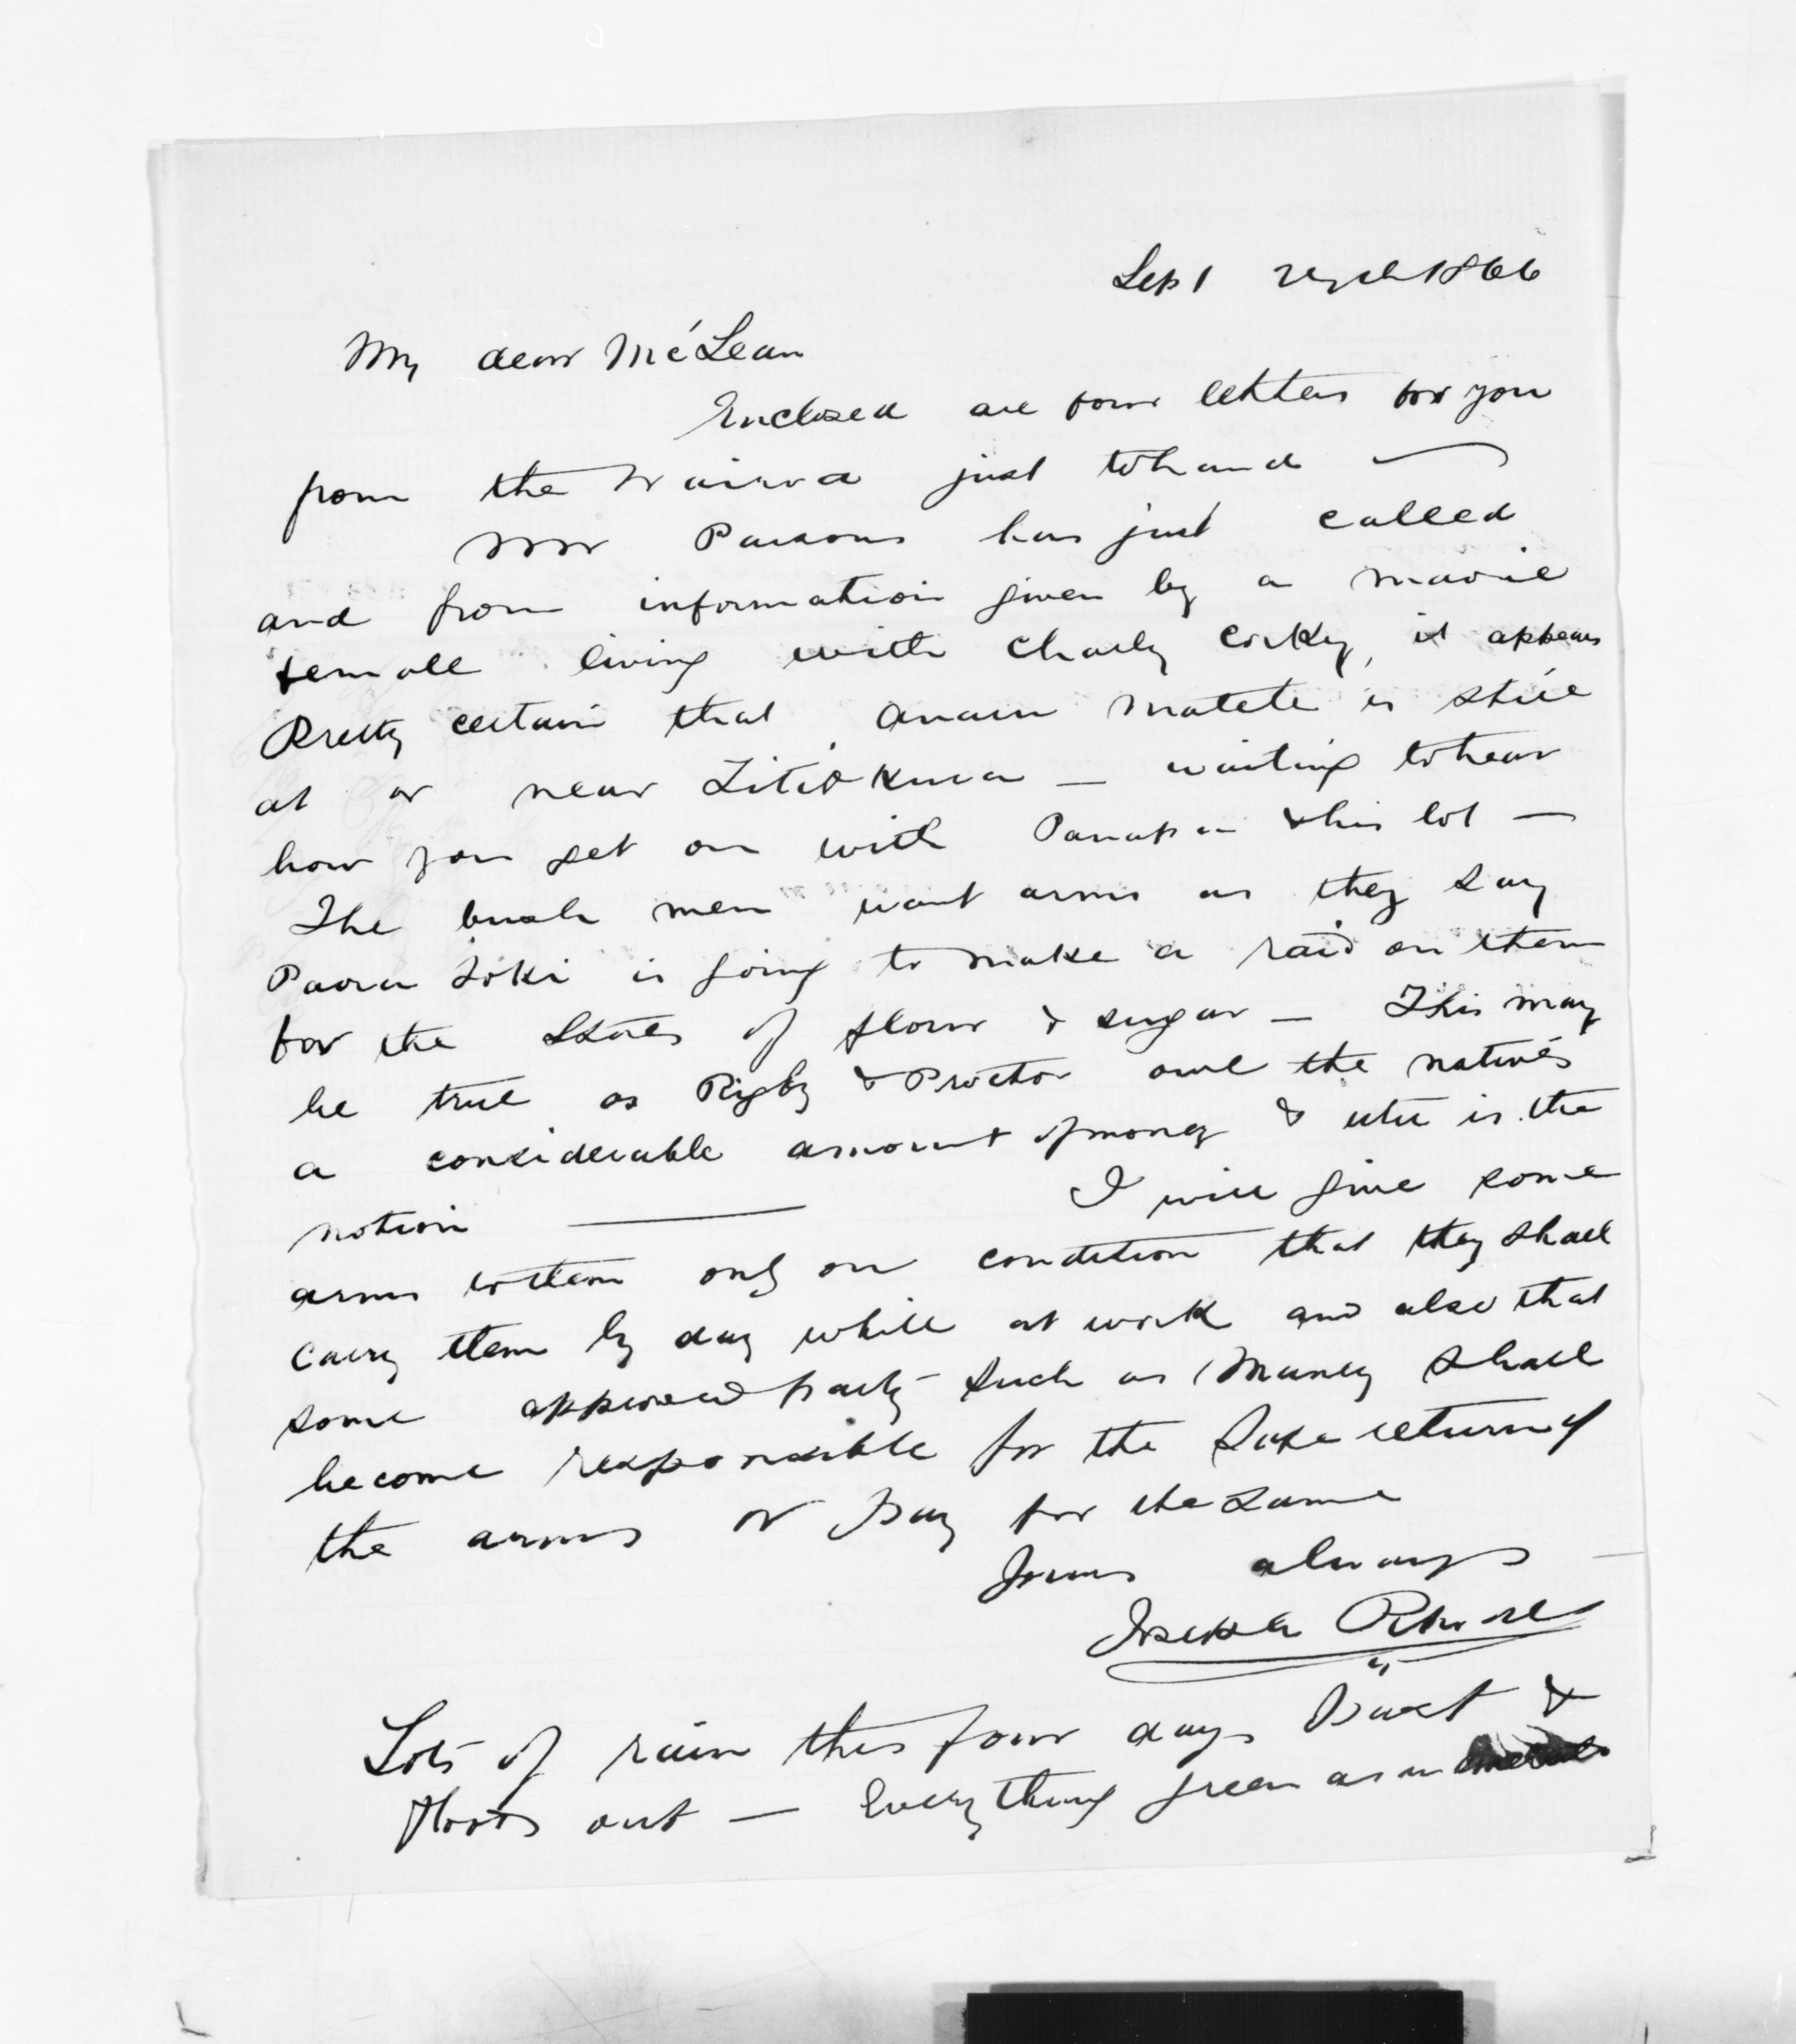 Sept 1866
My dear McLean
Enclosed are four letters for you
from the Wairoa just to hand —
Mr Parsons has just called
and from information given by a maorie
female living with Charly Corky, it appears
Pretty certain that Anaru Matete is still
at or near Titiokura — waiting to hear
how you get on with Panapa & his lot —
The bush men want arms as they say
Paora Toki is going to make a raid on them
for the Stores of flour & sugar — This may
be true as Rigby & Proctor owe the natives
a considerable amount of money & utu is the
notion — I will give some
arms to them only on condition that they shall
carry them by day while at work and also that
some approved party such as Maney shall
become responsible for the safe return of
the arms or Pay for the same
Yours always
Joseph Rhodes
Lots of rain this four days Past &
floods out — Everything green as an